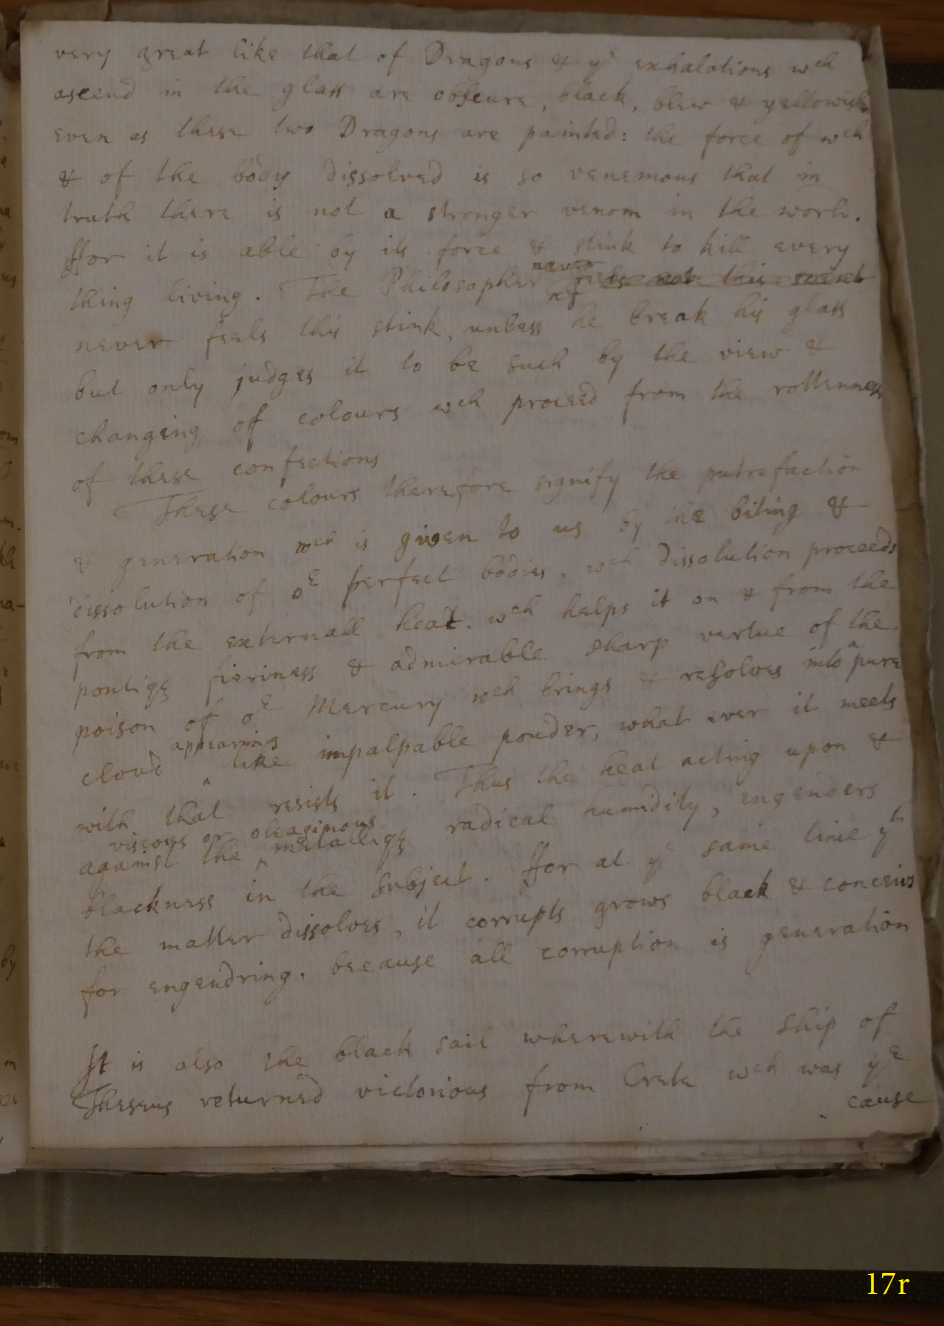 very great like that of Dragons & yᵉ exhalations wᶜʰ
ascend in the glass are obscure, black, blew & yellowish
even as these two Dragons are painted: the force of wᶜʰ
& of the body dissolved is so venemous that in
truth there is not a stronger venom in the world.
ffor it is able by its force & stink to kill every
thing living. The Philosopher never feels not this scent
never feels this stink, unless he break his glass
but only judges it to be such by the view &
changeing of colours wᶜʰ proceed from the rottenness
of these confections
These colours therefore signify the putrefaction
& generation wᶜʰ is given to us by the biting &
dissolution of oʳ perfect bodies, wᶜʰ dissolution proceeds
from the externall heat. wᶜʰ helps it on & from the
pontiqe fieriness & admirable sharp vertue of the
poison of oʳ Mercury wᶜʰ brings & resolves into a pure
cloud appearing like impalpable pouder, what ever it meets
with that resists it. Thus the heat acting upon &
against the viscous or oleaginous metalliqe radical humidity, engenders
blackness in the subject. ffor at yᵉ same time yᵗ
the matter dissolves, it corrupts grows black & conceivs
for engendring. because all corruption is generation
It is also the black sail wherewith the ship of
Theseus returned victorious from Crete wᶜʰ was yᵉ
cause
17r